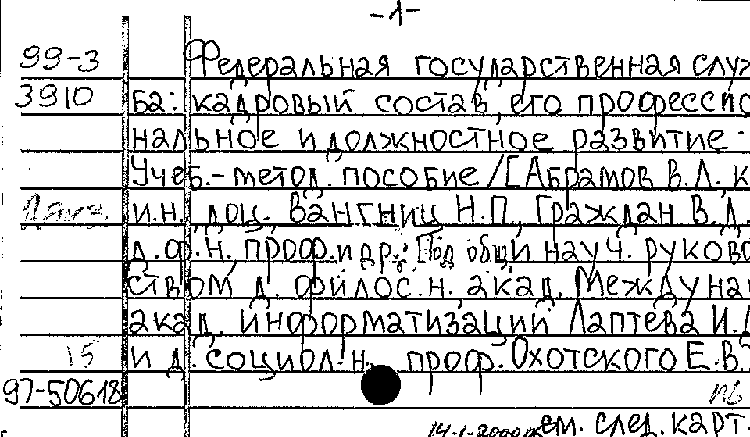 -1-
99-3 Федеральная государственная служ
3910 ба: кадровый состав, его професси
нальное и должностное развитие -
Учеб.-метод. пособие / [Абрамов В.Л. к
и.н., доц. Вангниц Н.П., Граждан В.Д.
д.ф.н. проф. и др.; Под общ и науч. руково
ством д. филос. н. акад. Междунар
акад. информатизации Лаптева И.Д
15 и д. социол. н. проф. Охотского Е.В.
97-50618
см. след. карт.